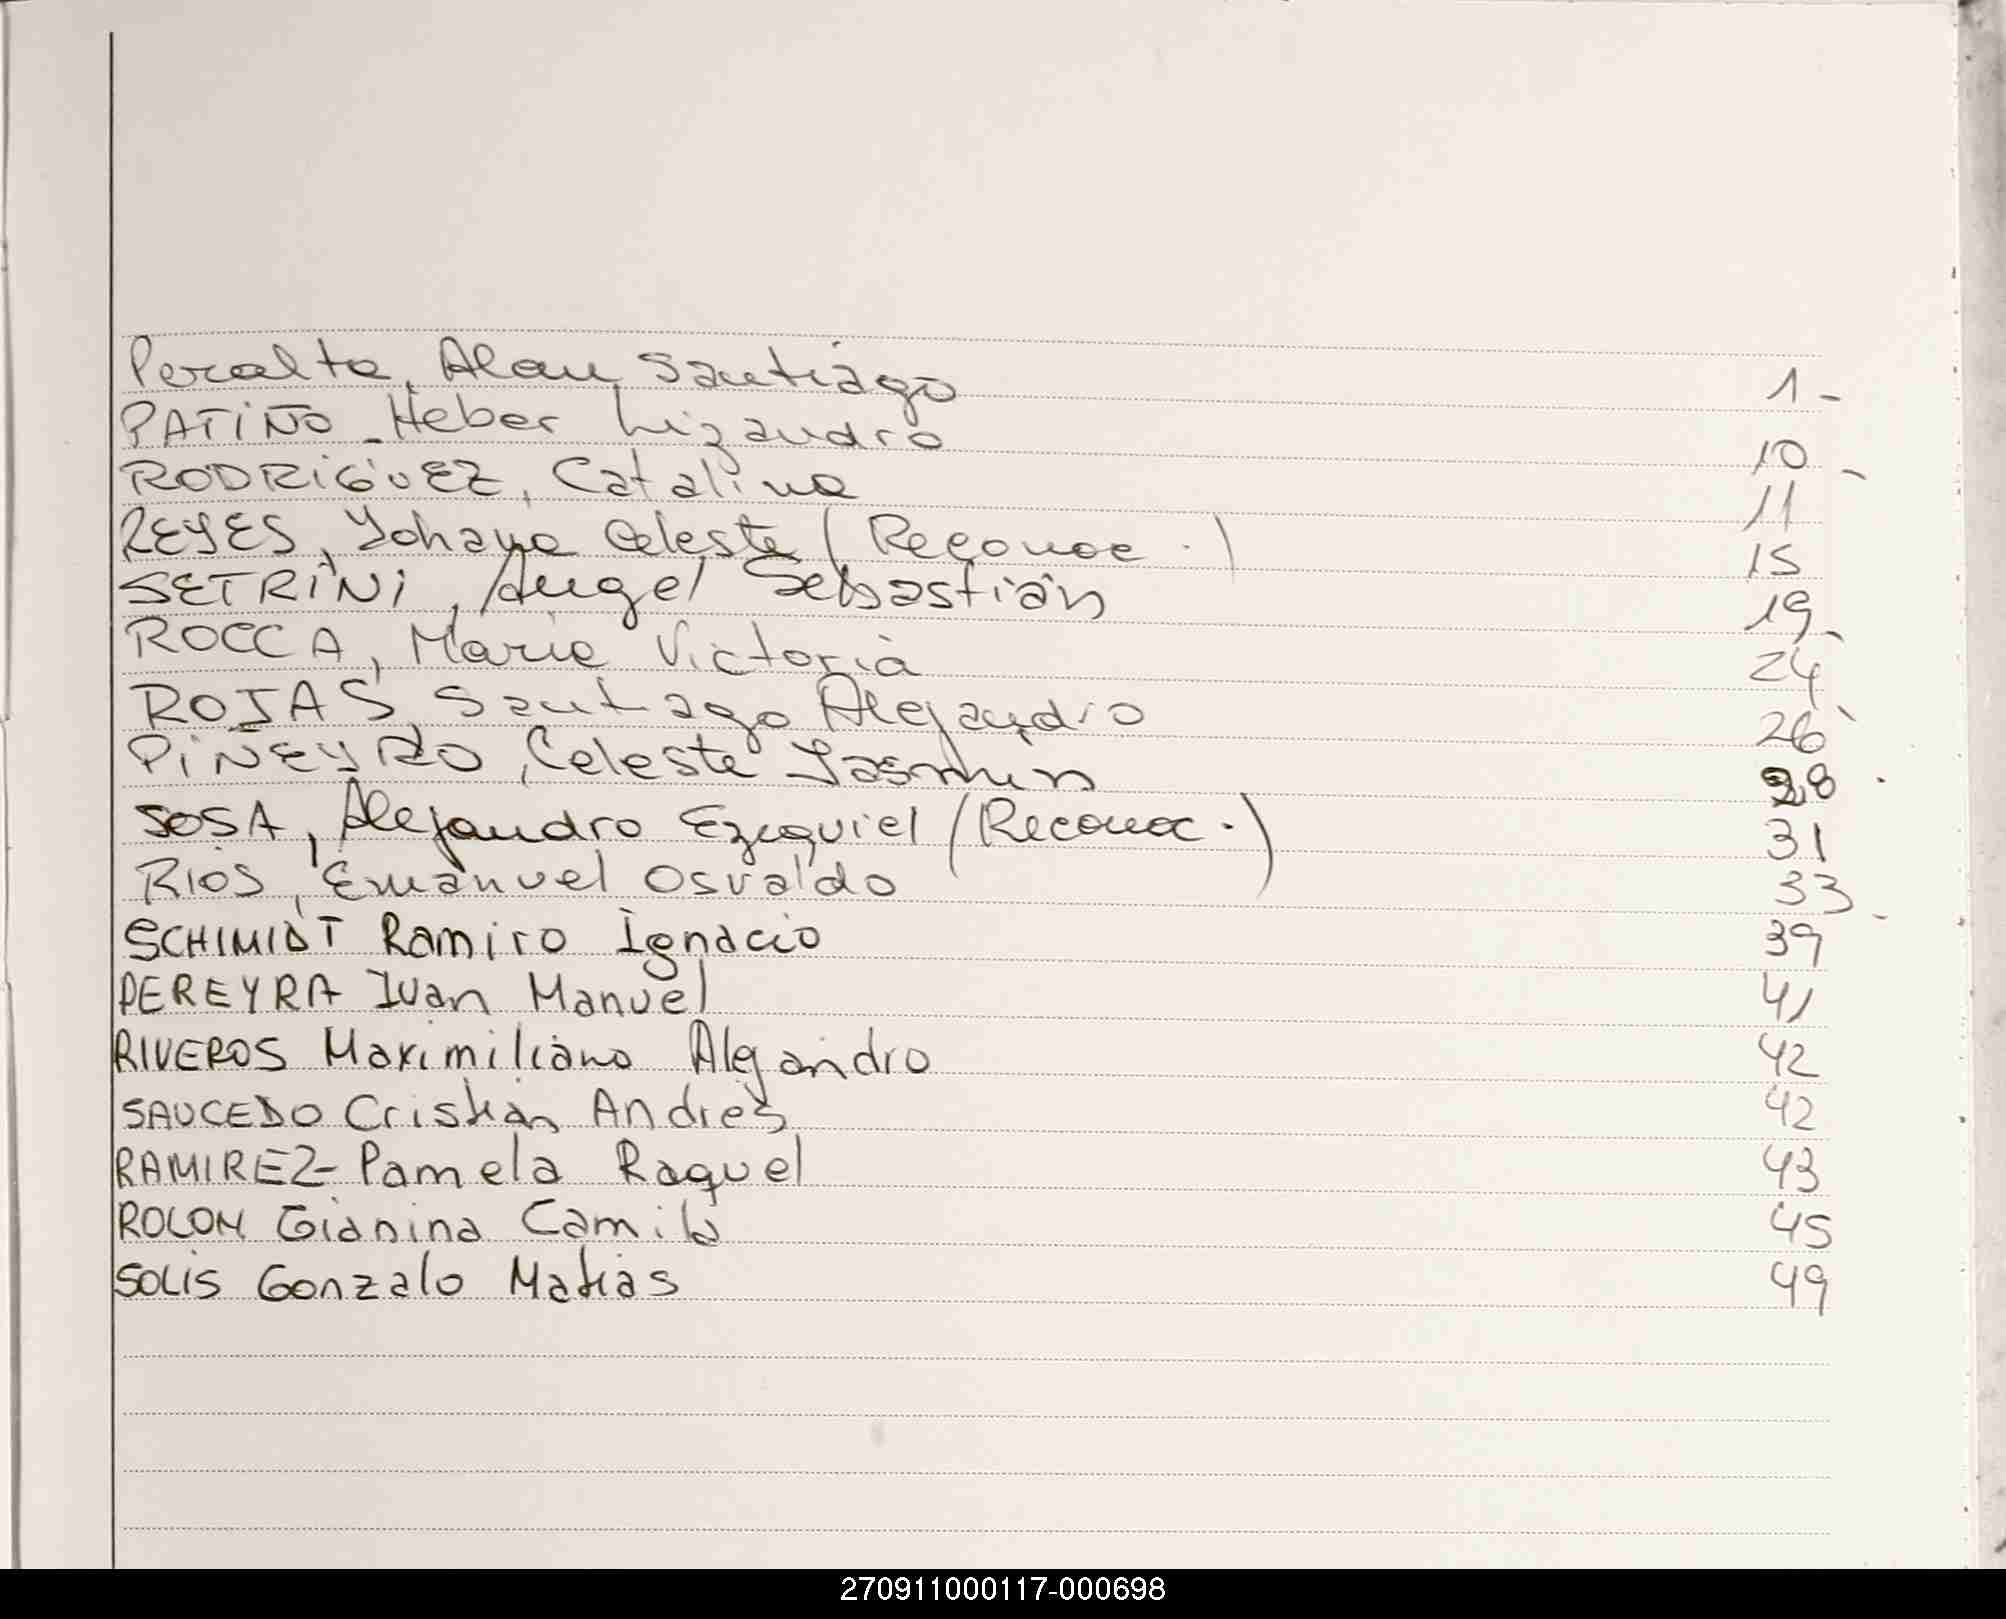 Peralta, Alan Santiago 1-
PATIÑO - Heber Lizandro 10 -
RODRIGUEZ, Catalina 11
REYES, Yohana Celeste (Reconoc.) 15
SETRINI, Angel Sebastián 19-
ROCCA, Maria Victoria 24
ROJAS, Santiago Alejandro 26
PIÑEYRO, Celeste Yasmin 28
SOSA, Alejandro Ezequiel (Reconoc.) 31
RIOS, Emanuel Osvaldo 33 -
SCHIMIDT Ramiro Ignacio 39
PEREYRA Ivan Manuel 41
RIVEROS Maximiliano Alejandro 42
SAUCEDO Cristian Andres 42
RAMIREZ- Pamela Raquel 43
ROLON Gianina Camila 45
SOLIS Gonzalo Matias 49
270911000117-000698